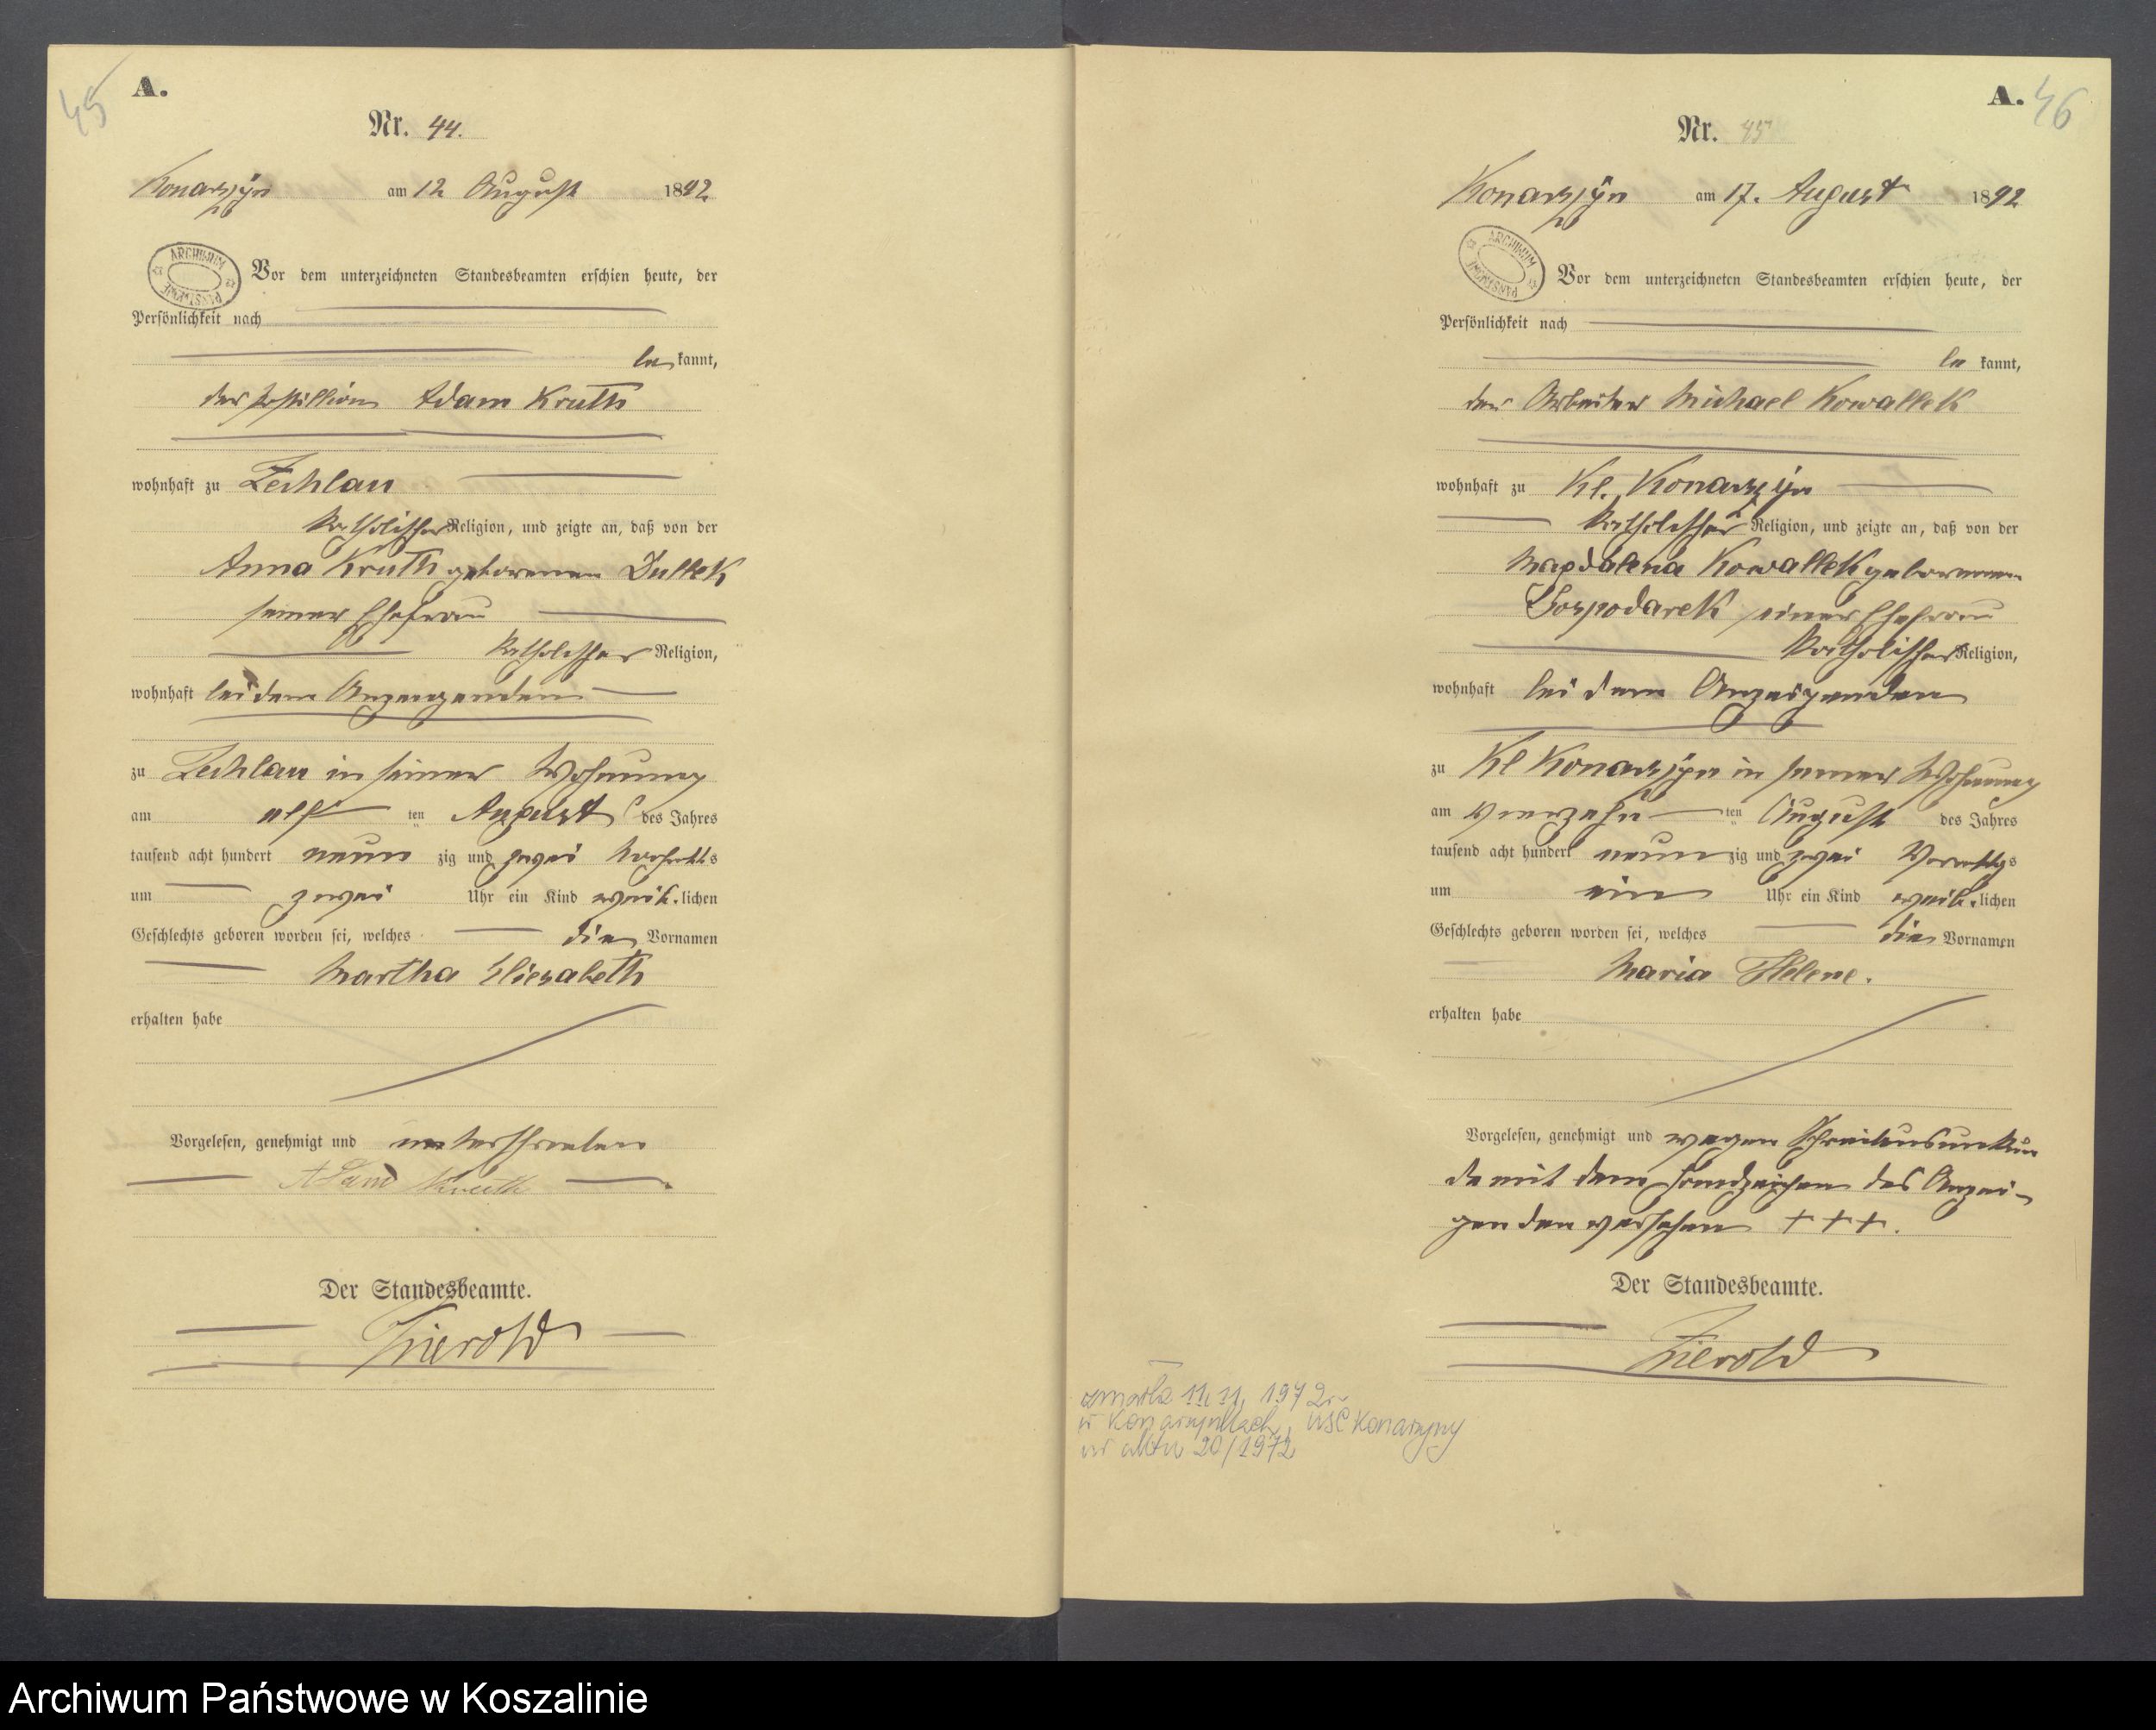 45
A.
Nr. 44.
Konarzyn am 12 August 1892
ARCHIWUM PAŃSTWOWE
Vor dem unterzeichneten Standesbeamten erschien heute, der
Persönlichkeit nach
be kannt,
der Postillion Adam Kruth
wohnhaft zu Zechlau
katholischer Religion, und zeigte an, daß von der
Anna Kruth geborenen Jullek
seiner Ehefrau
katholischer Religion,
wohnhaft bei dem Anzeigenden
zu Zechlau in seiner Wohnung
am elf ten August des Jahres
tausend acht hundert neun zig und zwei Nachmittags
um zwei Uhr ein Kind weib-lichen
Geschlechts geboren worden sei, welches die Vornamen
Martha Eliesabeth
erhalten habe
Vorgelesen, genehmigt und unterschrieben
Adam Kruth
Der Standesbeamte.
Zierold
A. 46
Nr. 45
Konarzyn am 17. August 1892
ARCHIWUM PAŃSTWOWE
Vor dem unterzeichneten Standesbeamten erschien heute, der
Persönlichkeit nach
be kannt,
der Arbeiter Michael Kowallek
wohnhaft zu Kl. Konarzyn
katholischer Religion, und zeigte an, daß von der
Magdalena Kowallek geborenen
Gospodarek seiner Ehefrau
katholischer Religion,
wohnhaft bei dem Anzeigenden
zu Kl Konarzyn in seiner Wohnung
am vierzehn ten August des Jahres
tausend acht hundert neun zig und zwei Vormittags
um ein Uhr ein Kind weib-lichen
Geschlechts geboren worden sei, welches die Vornamen
Maria Helene.
erhalten habe
Vorgelesen, genehmigt und wegen Schreibensunkun
de mit dem Handzeichen des Anzei-
genden versehen + + +.
Der Standesbeamte.
Zierold
zmarła 11.11.1972 r.
w Konarzynkach, USC Konarzyny
nr aktu 20/1972
Archiwum Państwowe w Koszalinie